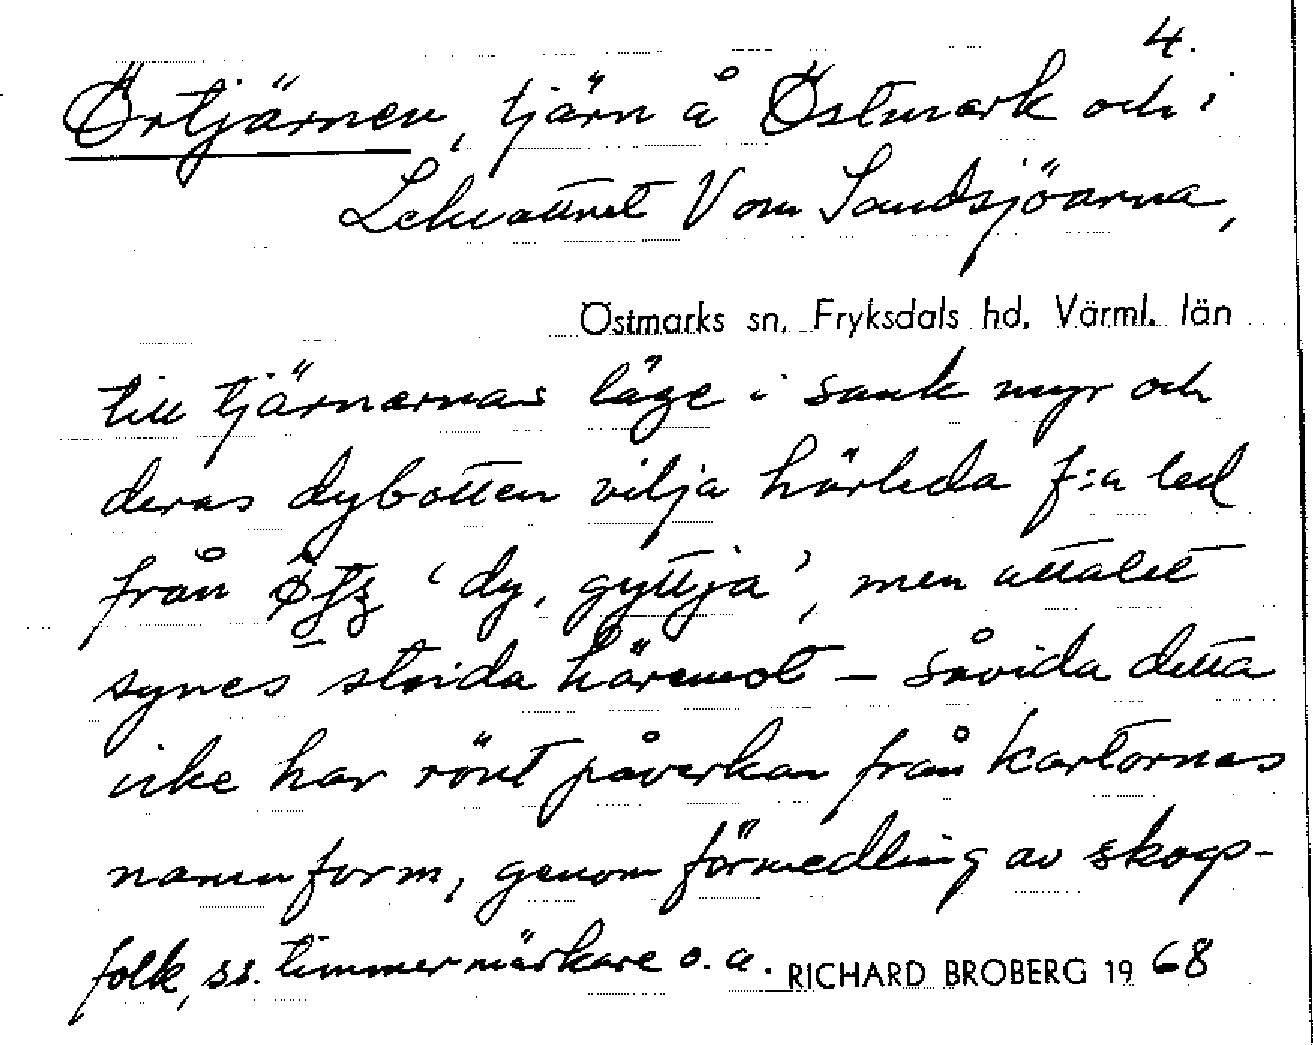 4.
Örtjärnen, tjärn å Östmark och i
Lekvattnet V om Sandsjöarna,
Östmarks sn. Fryksdals hd. Värml. län
till tjärnarnas läge i sank myr och
deras dybotten vilja härleda f:a led
från 'dy, gyttja', men uttalet
synes strida häremot – såvida detta
icke har rönt påverkan från kartornas
namnform, genom förmedling av skogs-
folk, ss. timmermärkare o. a.
RICHARD BROBERG 1968